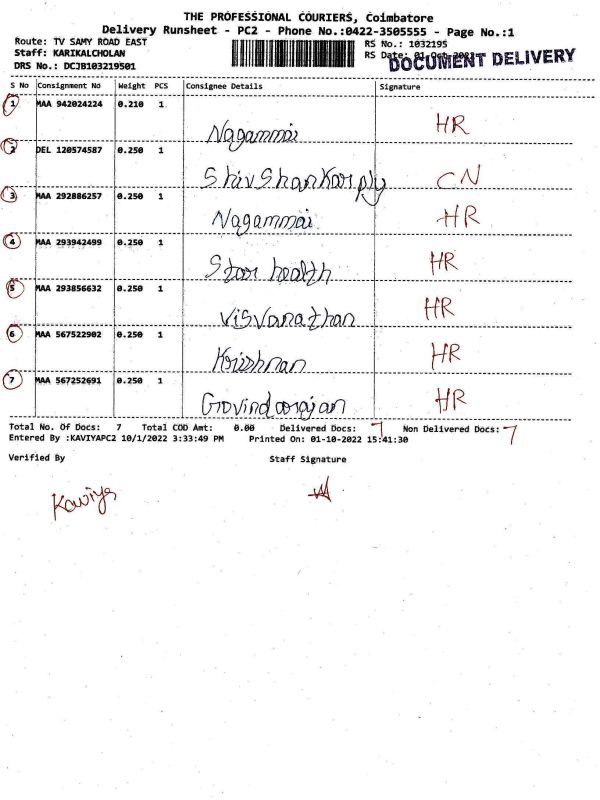 THE PROFESSIONAL COURIERS, Coimbatore
Delivery Runsheet - PC2 - Phone No.:0422-3505555 - Page No.:1
Route: TV SAMY ROAD EAST RS No.: 1032195
Staff: KARIKALCHOLAN RS Date: 01-Oct-2022
DRS No.: DCJB103219501 DOCUMENT DELIVERY
S No Consignment No Weight PCS Consignee Details Signature
1 MAA 942024224 0.210 1
Nagammai HR
2 DEL 120574587 0.250 1
Shiv Shankar ply CN
3 MAA 292886257 0.250 1
Nagammai HR
4 MAA 293942499 0.250 1
Star health HR
5 MAA 293856632 0.250 1
Visvanathan HR
6 MAA 567522902 0.250 1
Krishnan HR
7 MAA 567252691 0.250 1
Govindarajan HR
Total No. Of Docs: 7 Total COD Amt: 0.00 Delivered Docs: 7 Non Delivered Docs: 7
Entered By :KAVIYAPC2 10/1/2022 3:33:49 PM Printed On: 01-10-2022 15:41:30
Verified By Staff Signature
Kaviya